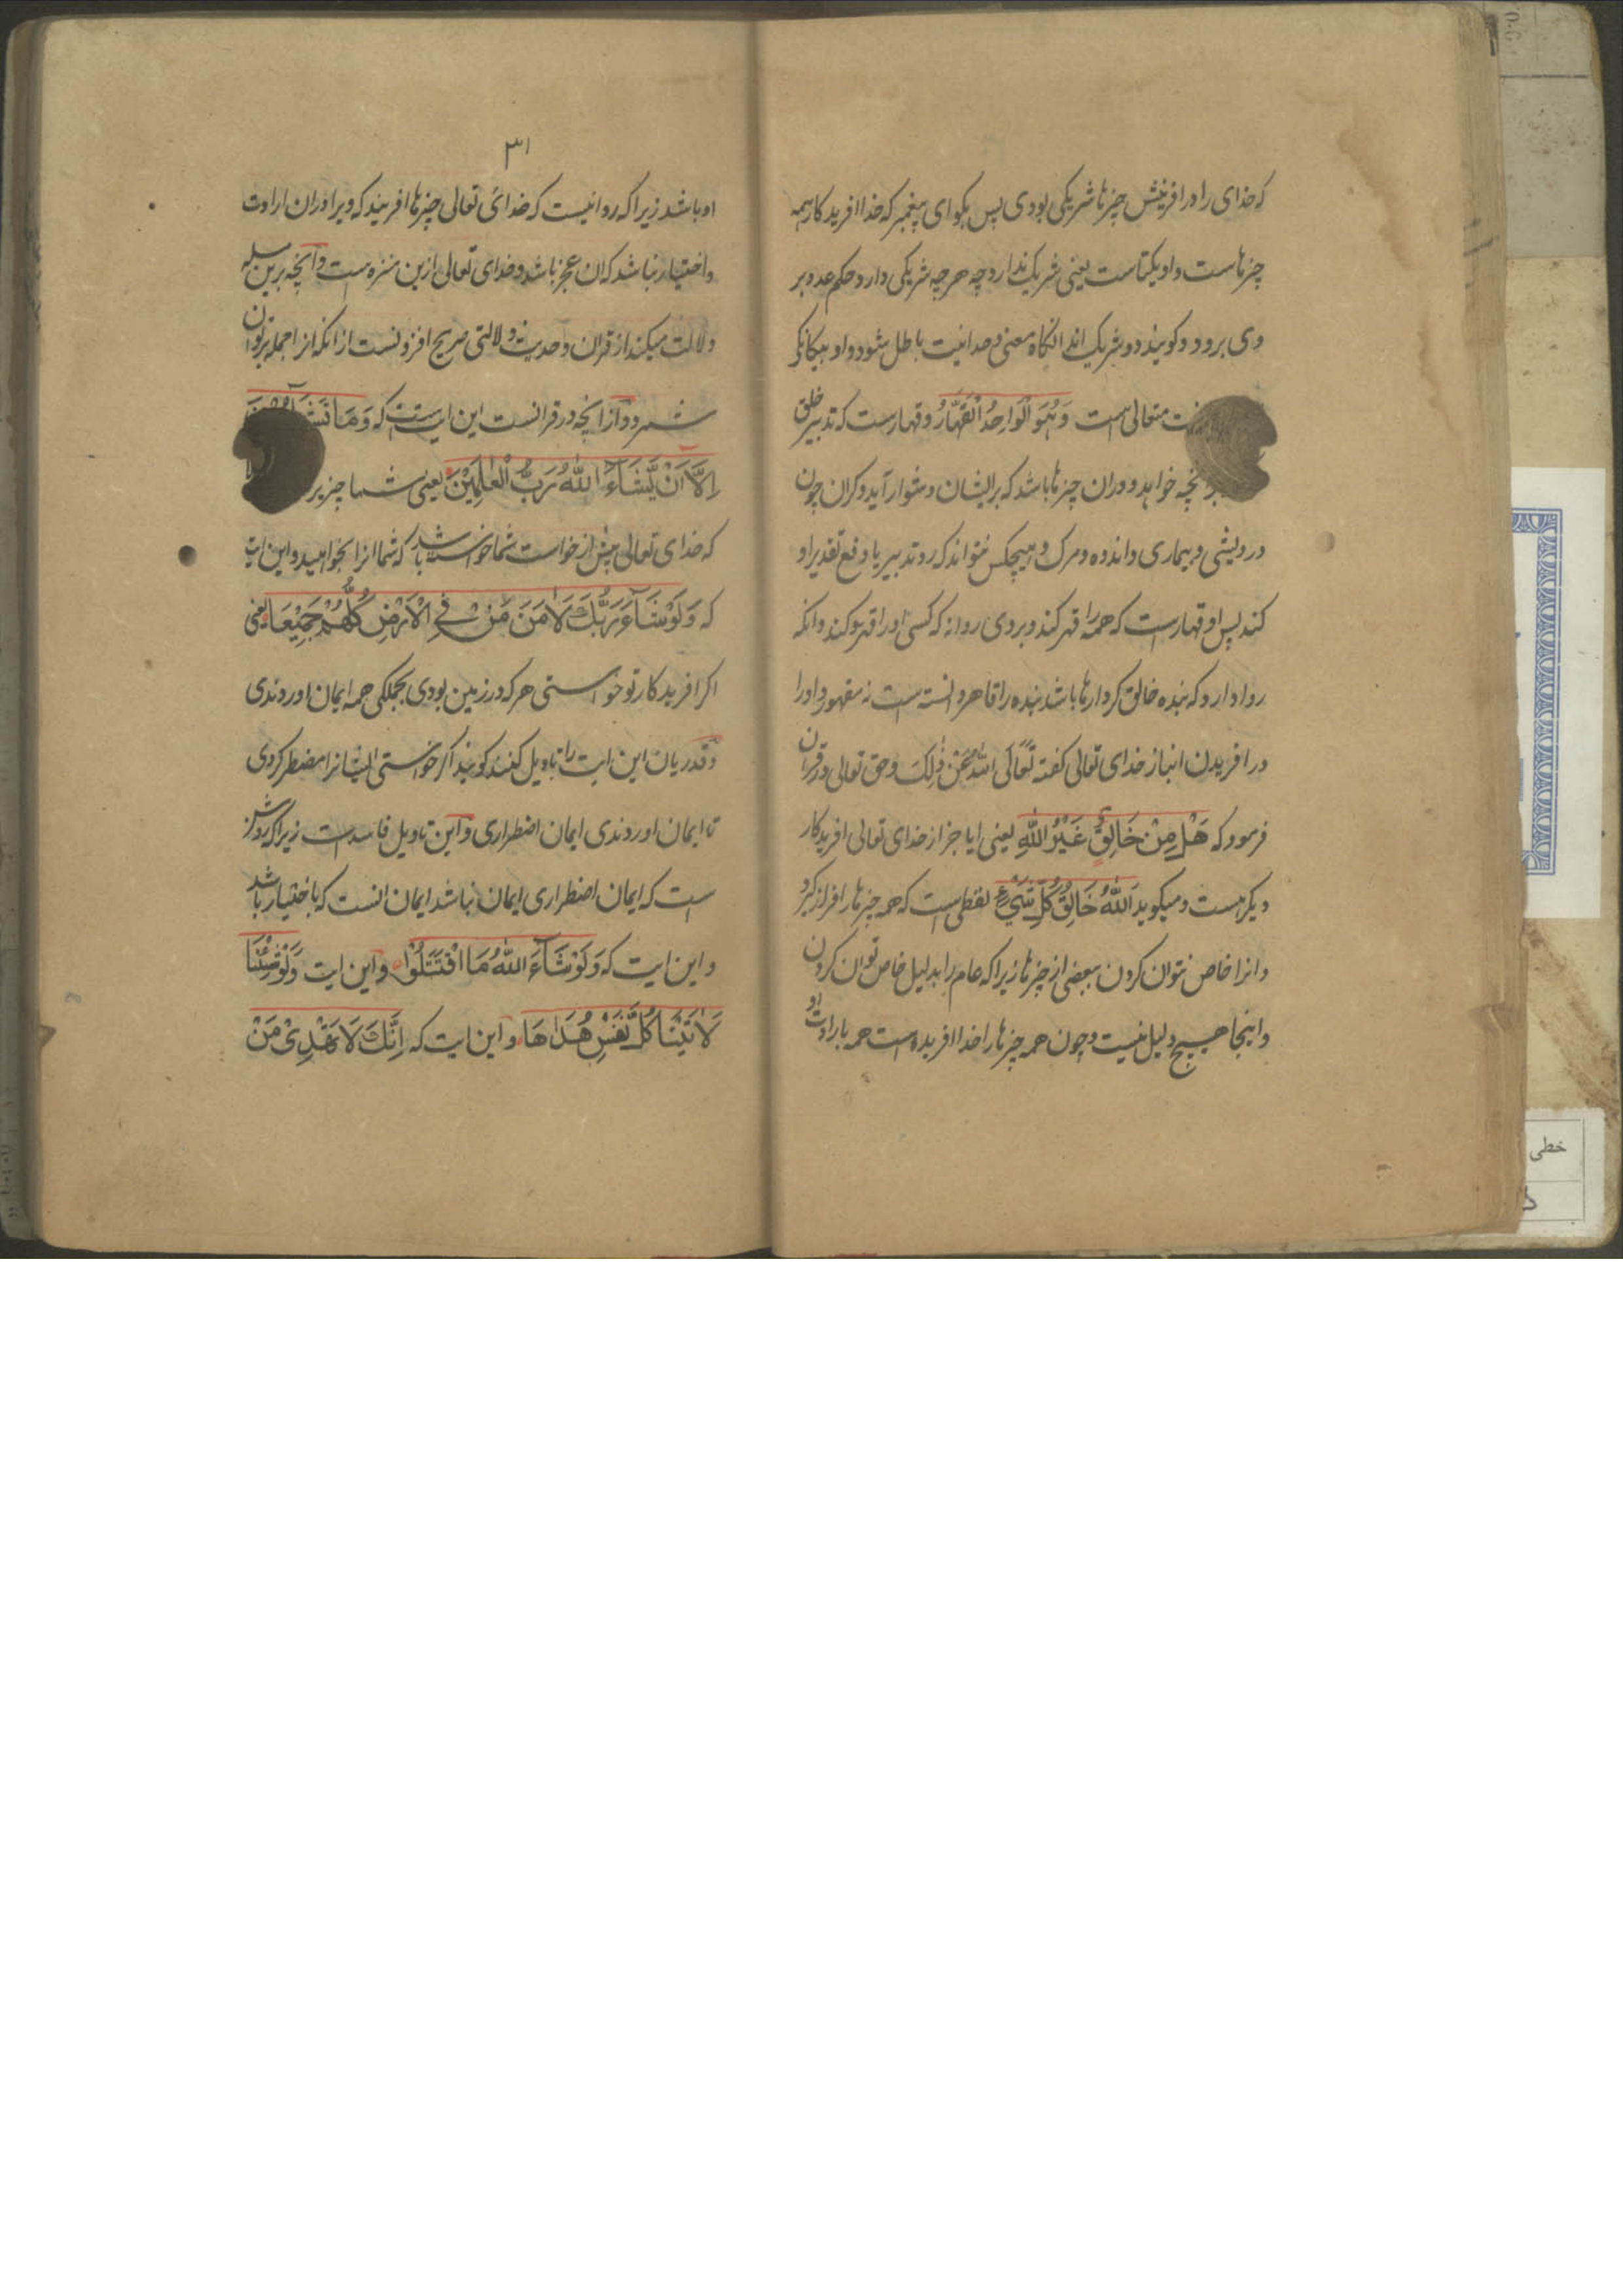 که خدای را در افرینش چیزها شریکی بودی پس بکو ای پیغمبر که خدا افریدکار همه
چیزهاست و او یکتاست یعنی شریک ندارد چه هرچه شریکی دارد حکم عدد بر
وی برود و کویند دو شریک اند انکاه معنی وحدانیت باطل شود و او بیکانکی
متعالی است وَهُوَ الْوَاحِدُ الْقَهَّارُ و قهارست که تدبیر خلق
انچه خواهد و دران چیزها باشد که بر ایشان دشوار آید و کران چون
درویشی و بیماری و اندوه و مرک و هیچکس نتواند که رد تدبیر یا دفع تقدیر او
کند پس او قهارست که همه را قهر کند و بر وی روا نه که کسی او را قهر کند و انکه
روا دارد که بنده خالق کردارها باشد بنده را قاهر دانسته است نه مقهور و او را
در افریدن انباز خدای تعالی کفته تَعَالَی اللهُ عَنْ ذٰلِكَ و حق تعالی در قران
فرمود که هَلْ مِنْ خَالِقٍ غَيْرُ اللّٰهِ یعنی ایا جز از خدای تعالی افریدکار
دیکر هست و میکوید اَللّٰهُ خَالِقُ كُلِّ شَيْءٍ لفظی است که همه چیزها را فراز کیرد
و انرا خاص نتوان کردن ببعضی از چیزها زیرا که عام را بدلیل خاص توان کردن
و اینجا هیچ دلیل نیست و چون همه چیزها را خدا افریده است همه بارادت او
۳۱
او باشد زیرا که روا نیست که خدای تعالی چیزها افریند که ویرا دران ارادت
و اختیار نباشد که ان عجز باشد و خدای تعالی ازین منزه است و آنچه برین مسله
دلالت میکند از قران و حدیث دلالتی صریح افزونست از انکه از جمله بر توان
شمرد و از انچه در قرانست این ایت است که وَمَا تَشَاءُوْنَ
اِلَّا اَنْ يَّشَاءَ اللّٰهُ رَبُّ الْعٰلَمِيْنَ یعنی شما چیز
که خدای تعالی پیش از خواست شما خواسته باشد که شما انرا بخواهید و این ایت
که وَلَوْ شَآءَ رَبُّكَ لَاٰمَنَ مَنْ فِی الْاَرْضِ كُلُّهُمْ جَمِيْعًا یعنی
اکر افریدکار تو خواستی هر که در زمین بودی بجملکی همه ایمان اوردندی
و قدریان این ایت را تاویل کنند کویند اکر خواستی ایشانرا مضطر کردی
تا ایمان اوردندی ایمان اضطراری و این تاویل فاسد است زیرا که روشن
است که ایمان اضطراری ایمان نباشد ایمان انست که باختیار باشد
و این ایت که وَلَوْ شَآءَ اللّٰهُ مَا اقْتَتَلُوْا و این ایت وَلَوْ شِئْنَا
لَاٰتَيْنَا كُلَّ نَفْسٍ هُدٰىهَا و این ایت که اِنَّكَ لَا تَهْدِیْ مَنْ
خطی